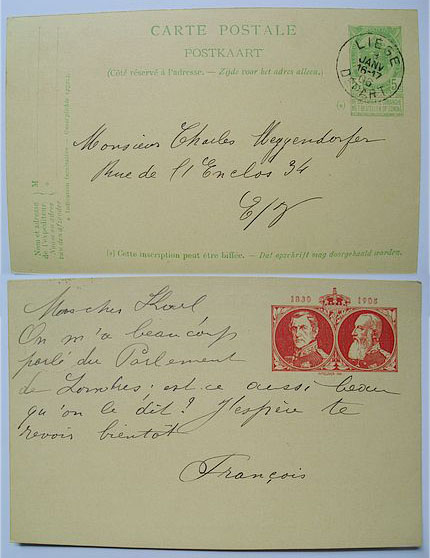 CARTE POSTALE
POSTKAART
(Côté réservé à l'adresse. — Zijde voor het adres alleen.)
LIEGE
1
JANV
16-17
06
DEPART
5
(*)
Monsieur Charles Meggendorfer
Rue de l'Enclos 34
E/V
Nom et adresse
de l'expéditeur
Naam en adres
van den afzender
M
(*) Cette inscription peut être biffée. — Dat opschrift mag doorgehaald worden.
1830 1905
Mon cher Karl
On m'a beaucoup
parlé du Parlement
de Londres: est-ce aussi beau
qu'on le dit? J'espère te
revoir bientôt
François